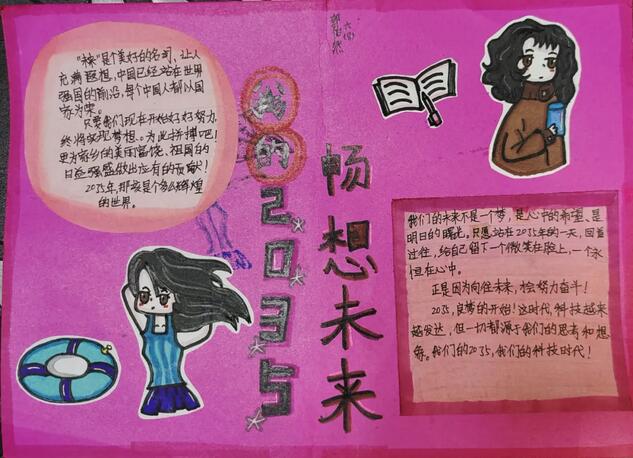 "未来"是个美好的名词、让人
充满遐想,中国已经站在世界
强国的前沿,每个中国人都以国
家为荣。
只要我们现在开始好好努力,
终将实现梦想。为此拼搏吧!
更为家乡的美丽富饶、祖国的
日益强盛做出应有的贡献!
2035年,那该是个多么辉煌
的世界。
我的2035
畅想未来
六四
我们的未来不是一个梦,是心中的希望、是
明日的曙光。只愿站在2035年的一天,回首
过往,给自己留下一个微笑在脸上,一个永
恒在心中。
正是因为向往未来,才会努力奋斗!
2035,良梦的开始!这时代,科技越来
越发达,但一切都源于我们的思考和想
象。我们的2035,我们的科技时代!